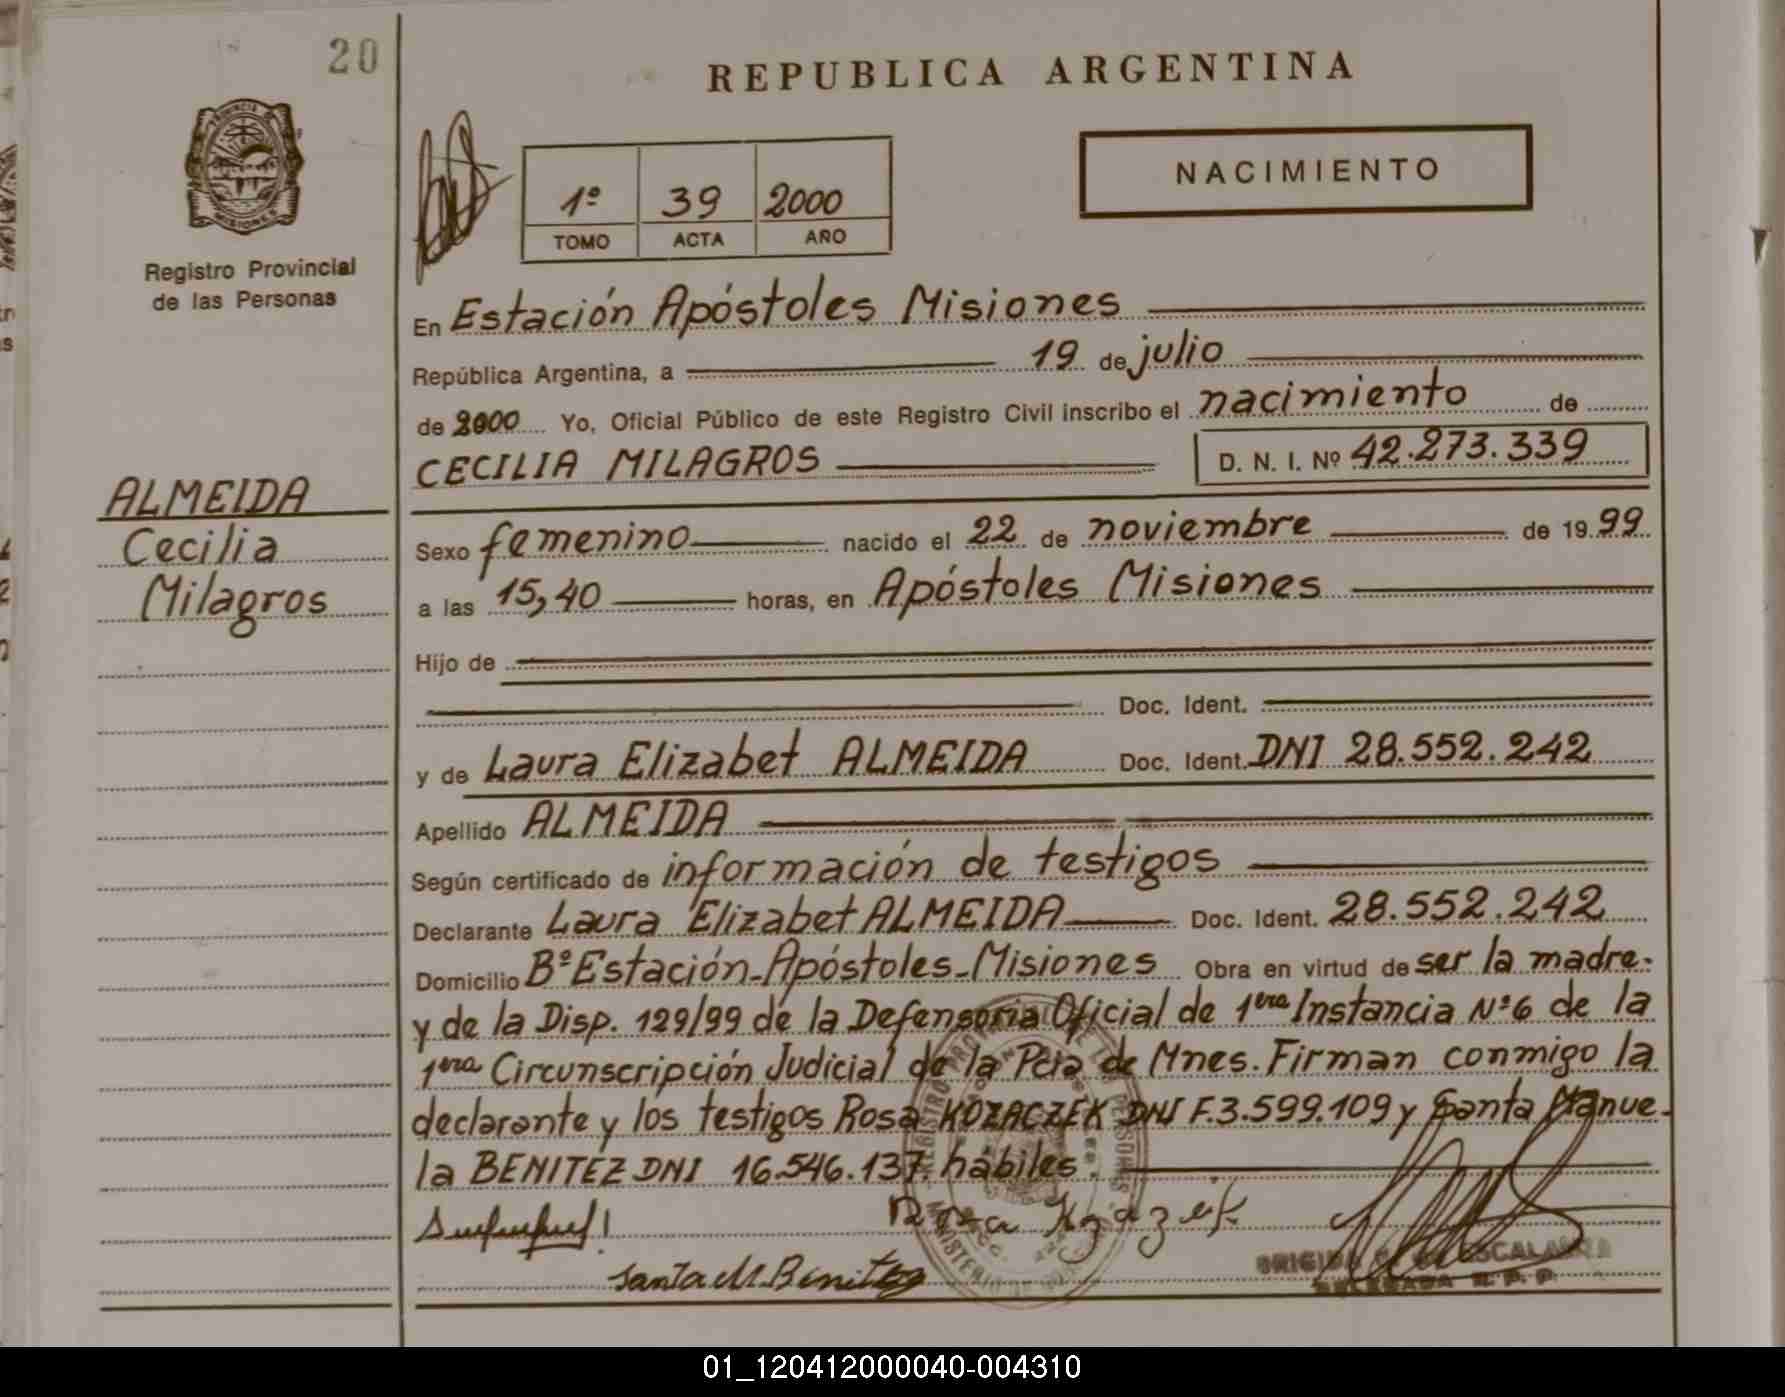 20
REPUBLICA ARGENTINA
PROVINCIA DE
MISIONES
Registro Provincial
de las Personas
1º 39 2000
TOMO ACTA AÑO
NACIMIENTO
En Estación Apóstoles Misiones
República Argentina, a 19 de julio
de 2000 Yo, Oficial Público de este Registro Civil inscribo el nacimiento de
CECILIA MILAGROS D. N. I. Nº 42.273.339
ALMEIDA
Cecilia
Milagros
Sexo femenino nacido el 22 de noviembre de 1999
a las 15,40 horas, en Apóstoles Misiones
Hijo de
Doc. Ident.
y de Laura Elizabet ALMEIDA Doc. Ident. DNI 28.552.242
Apellido ALMEIDA
Según certificado de información de testigos
Declarante Laura Elizabet ALMEIDA Doc. Ident. 28.552.242
Domicilio Bº Estación-Apóstoles-Misiones Obra en virtud de ser la madre.
y de la Disp. 129/99 de la Defensoria Oficial de 1era Instancia Nº6 de la
1era Circunscripción Judicial de la Pcia de Mnes. Firman conmigo la
declarante y los testigos Rosa KOZACZEK DNI F.3.599.109 y Santa Manue-
la BENITEZ DNI 16.546.137. habiles
Santa M. Benitez
01_120412000040-004310